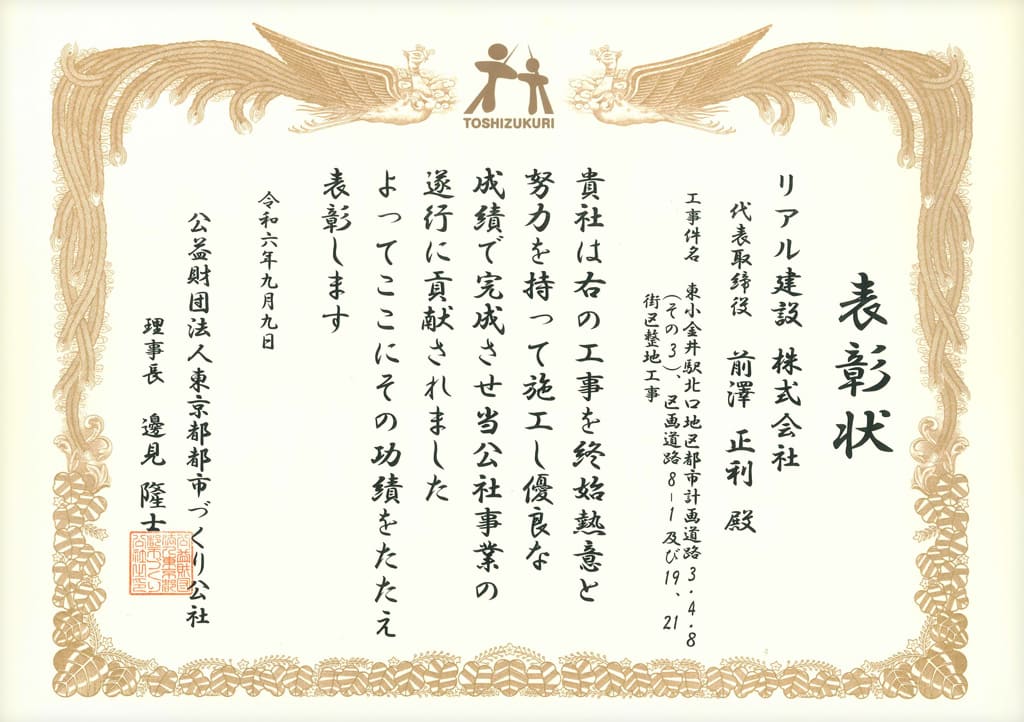 TOSHIZUKURI
表彰状
リアル建設 株式会社
代表取締役 前澤 正利 殿
工事件名 東小金井駅北口地区都市計画道路3・4・8
(その3)、区画道路8-1及び19、21
街区整地工事
貴社は右の工事を終始熱意と
努力を持って施工し優良な
成績で完成させ当公社事業の
遂行に貢献されました
よってここにその功績をたたえ
表彰します
令和六年九月九日
公益財団法人東京都都市づくり公社
理事長 邊見 隆士